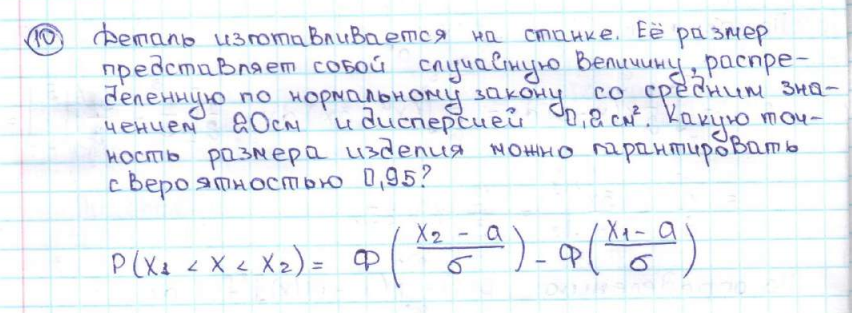 10 Деталь изготавливается на станке. Её размер
представляет собой случайную величину, распре-
деленную по нормальному закону со средним зна-
чением 20см и дисперсией 0,2 см². Какую точ-
ность размера изделия можно гарантировать
с вероятностью 0,95?
P(x₁ < x < x₂) = Ф((x₂ - a)/σ) - Ф((x₁ - a)/σ)